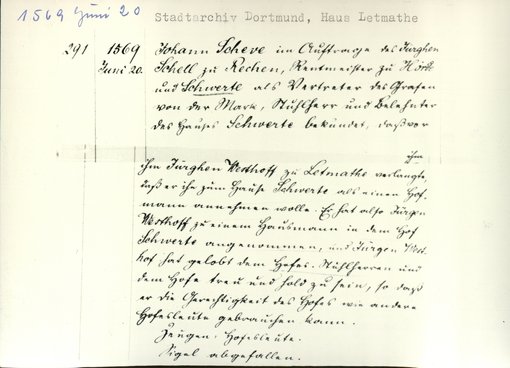 1569 Juni 20
Stadtarchiv Dortmund, Haus Letmathe
291 1569 Johann Scheve im Auftrage des Jürghen
Juni 20. Schell zu Rechen, Rentmeister zu Hörde
und Schwerte als Vertreter des Grafen
von der Mark, Stuhlherr und Belehnter
des Hauses Schwerte bekundet, daß vor
ihm
ihm Jürghen Westhoff zu Letmathe verlangte,
daß er ihn zum Hause Schwerte als einen Hof-
mann annehmen wolle. Er hat also Jürgen
Westhoff zu einem Hausmann in dem Hof
Schwerte angenommen, und Jürgen West-
hof hat gelobt dem Hofes-Stuhlherren und
dem Hofe treu und hold zu sein, so daß
er die Gerechtigkeit des Hofes wie andere
Hofesleute gebrauchen kann.
Zeugen: Hofesleute.
Sigel abgefallen.